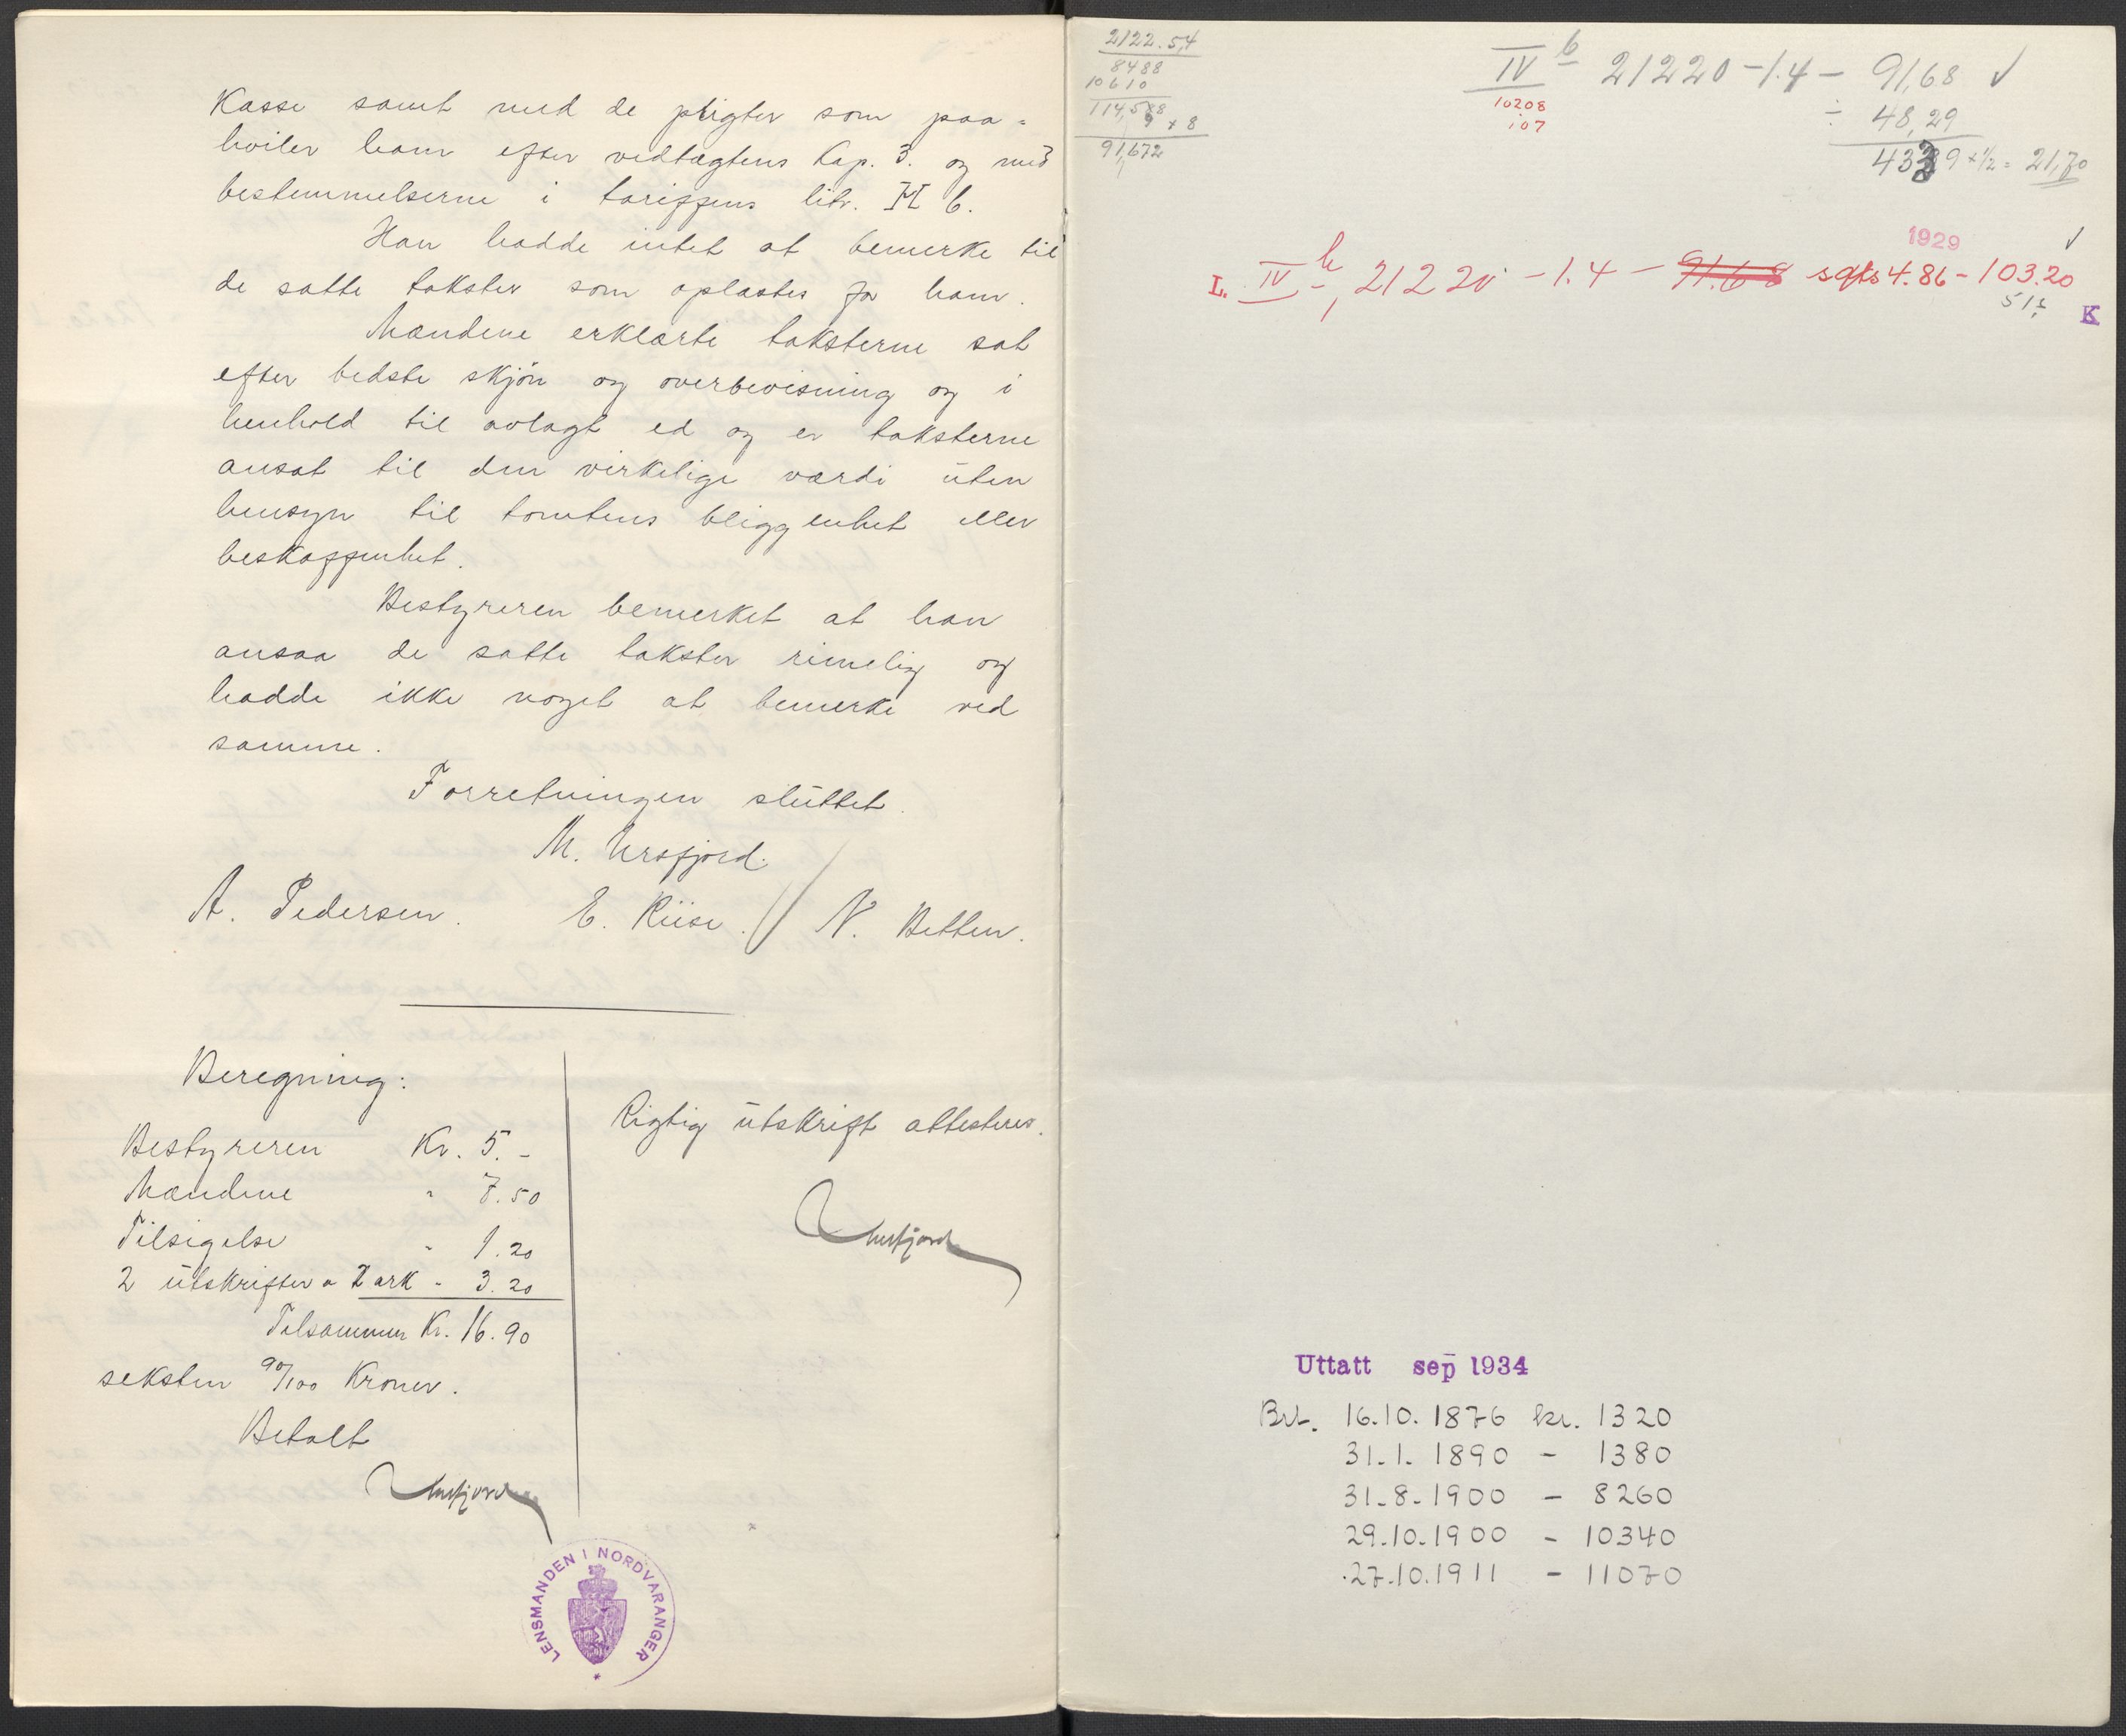 Kasse samt med de pligter som paa-
hviler ham efter vedtægtens Kap. 3. og med
bestemmelserne i tariffens litr. H 6.
Han hadde intet at bemerke til
de satte takster som oplæstes for ham.
Mændene erklærte taksterne sat
efter bedste skjön og overbevisning og i
henhold til avlagt ed og er taksterne
ansat til den virkelige værdi uten
hensyn til tomtens beliggenhet eller
beskaffenhet.
Bestyreren bemerket at han
ansaa de satte takster rimelig og
hadde ikke noget at bemerke ved
samme.
Forretningen sluttet.
M. Ursfjord.
A. Pedersen. E. Riise. // N. Betten.
Beregning:
Bestyreren Kr. 5.-
Mændene " 7.50
Tilsigelse " 1.20
2 utskrifter a 2 ark - 3.20
Tilsammen Kr. 16.90
seksten 90/100 Kroner.
Betalt
Ursfjord
Rigtig utskrift attesteres.
Ursfjord
LENSMANDEN I NORDVARANGER
2122.54
8488
10610
114,588
9 + 8
91,672
IV b 21220 - 1.4 - 91,68 ✓
10208
107
÷ 48,29
43,39 × 1/2 = 21,70
1929 ✓
L. IV b, 21220 - 1.4 - 91.68 sqts 4.86 - 103.20
K
Uttatt sep 1934
Brt. 16.10.1876 kr. 1320
31.1.1890 - 1380
31.8.1900 - 8260
29.10.1900 - 10340
27.10.1911 - 11070